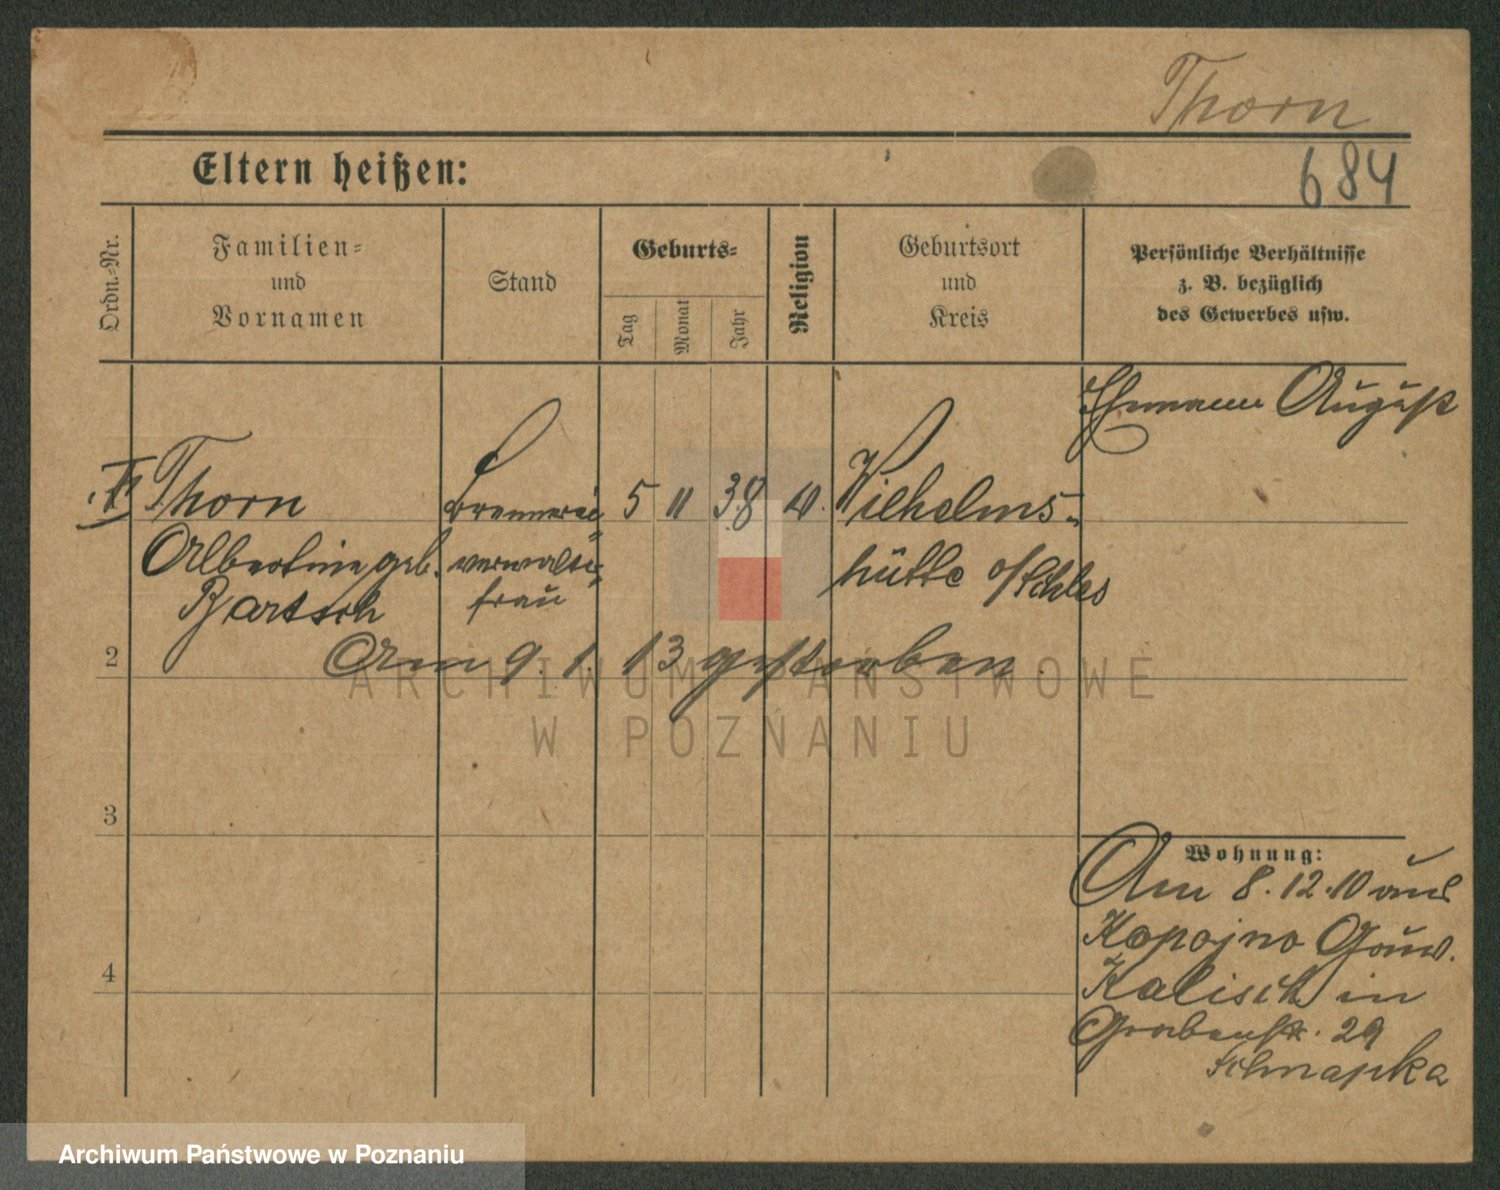 Thorn
684
Eltern heißen:
Ordn.-Nr.
Familien-
und
Vornamen
Stand
Geburts-
Tag
Monat
Jahr
Religion
Geburtsort
und
Kreis
Persönliche Verhältnisse
z. B. bezüglich
des Gewerbes usw.
Ehemann August
Thorn
Albertine geb.
Bartsch
Brennerei
verwalter
frau
5
11
38
Wilhelms-
hütte o/Schles
2
Am 9. 1. 13 gestorben.
3
4
Wohnung:
Am 8.12.10 aus
Kopojno Gouv.
Kalisch in
Grabenstr. 29
Schnapka
ARCHIWUM PAŃSTWOWE
W POZNANIU
Archiwum Państwowe w Poznaniu